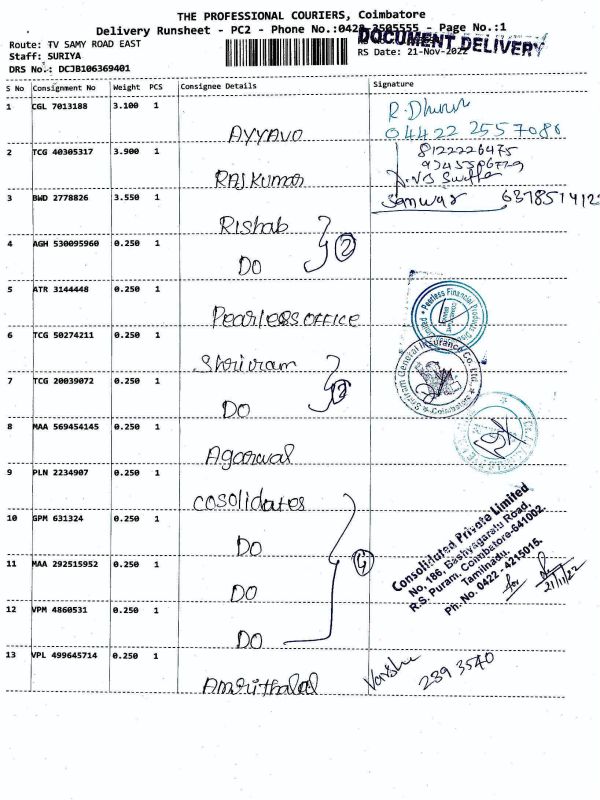 THE PROFESSIONAL COURIERS, Coimbatore
Delivery Runsheet - PC2 - Phone No.:0422-3505555 - Page No.:1
DOCUMENT DELIVERY
Route: TV SAMY ROAD EAST
Staff: SURIYA
RS Date: 21-Nov-2022
DRS No.: DCJB106369401
S No Consignment No Weight PCS Consignee Details Signature
1 CGL 7013188 3.100 1 AYYAVO R. Dhurun
04422 2557086
2 TCG 40305317 3.900 1 RAJ.Kumar
8122226475
3 BWD 2778826 3.550 1 Rishab } 2
Sanwar 6378514123
4 AGH 530095960 0.250 1 DO
5 ATR 3144448 0.250 1 Pearless OFFICE
Peerless Financial Products
6 TCG 50274211 0.250 1 Shriram } 2
Shriram General Insurance Co. Ltd.
Coimbatore
7 TCG 20039072 0.250 1 DO
8 MAA 569454145 0.250 1 Agarwal
9 PLN 2234907 0.250 1 cosolidates } 4
10 GPM 631324 0.250 1 DO
11 MAA 292515952 0.250 1 DO
12 VPM 4860531 0.250 1 DO
Consolidated Private Limited
No. 186, Bashyagaralu Road,
R.S. Puram, Coimbatore-641002.
Tamilnadu.
Ph. No. 0422 - 4215015.
for
21/11/22
13 VPL 499645714 0.250 1 Amrithalal Varsha 239 3540